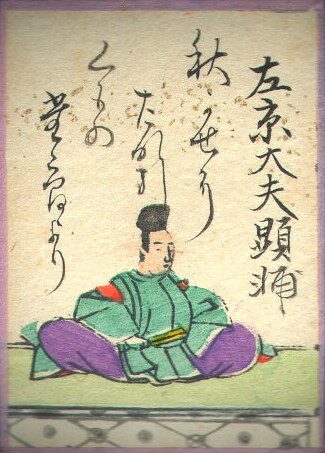 左京大夫顕輔
秋かせに
たなひ
くもの
たえ間より